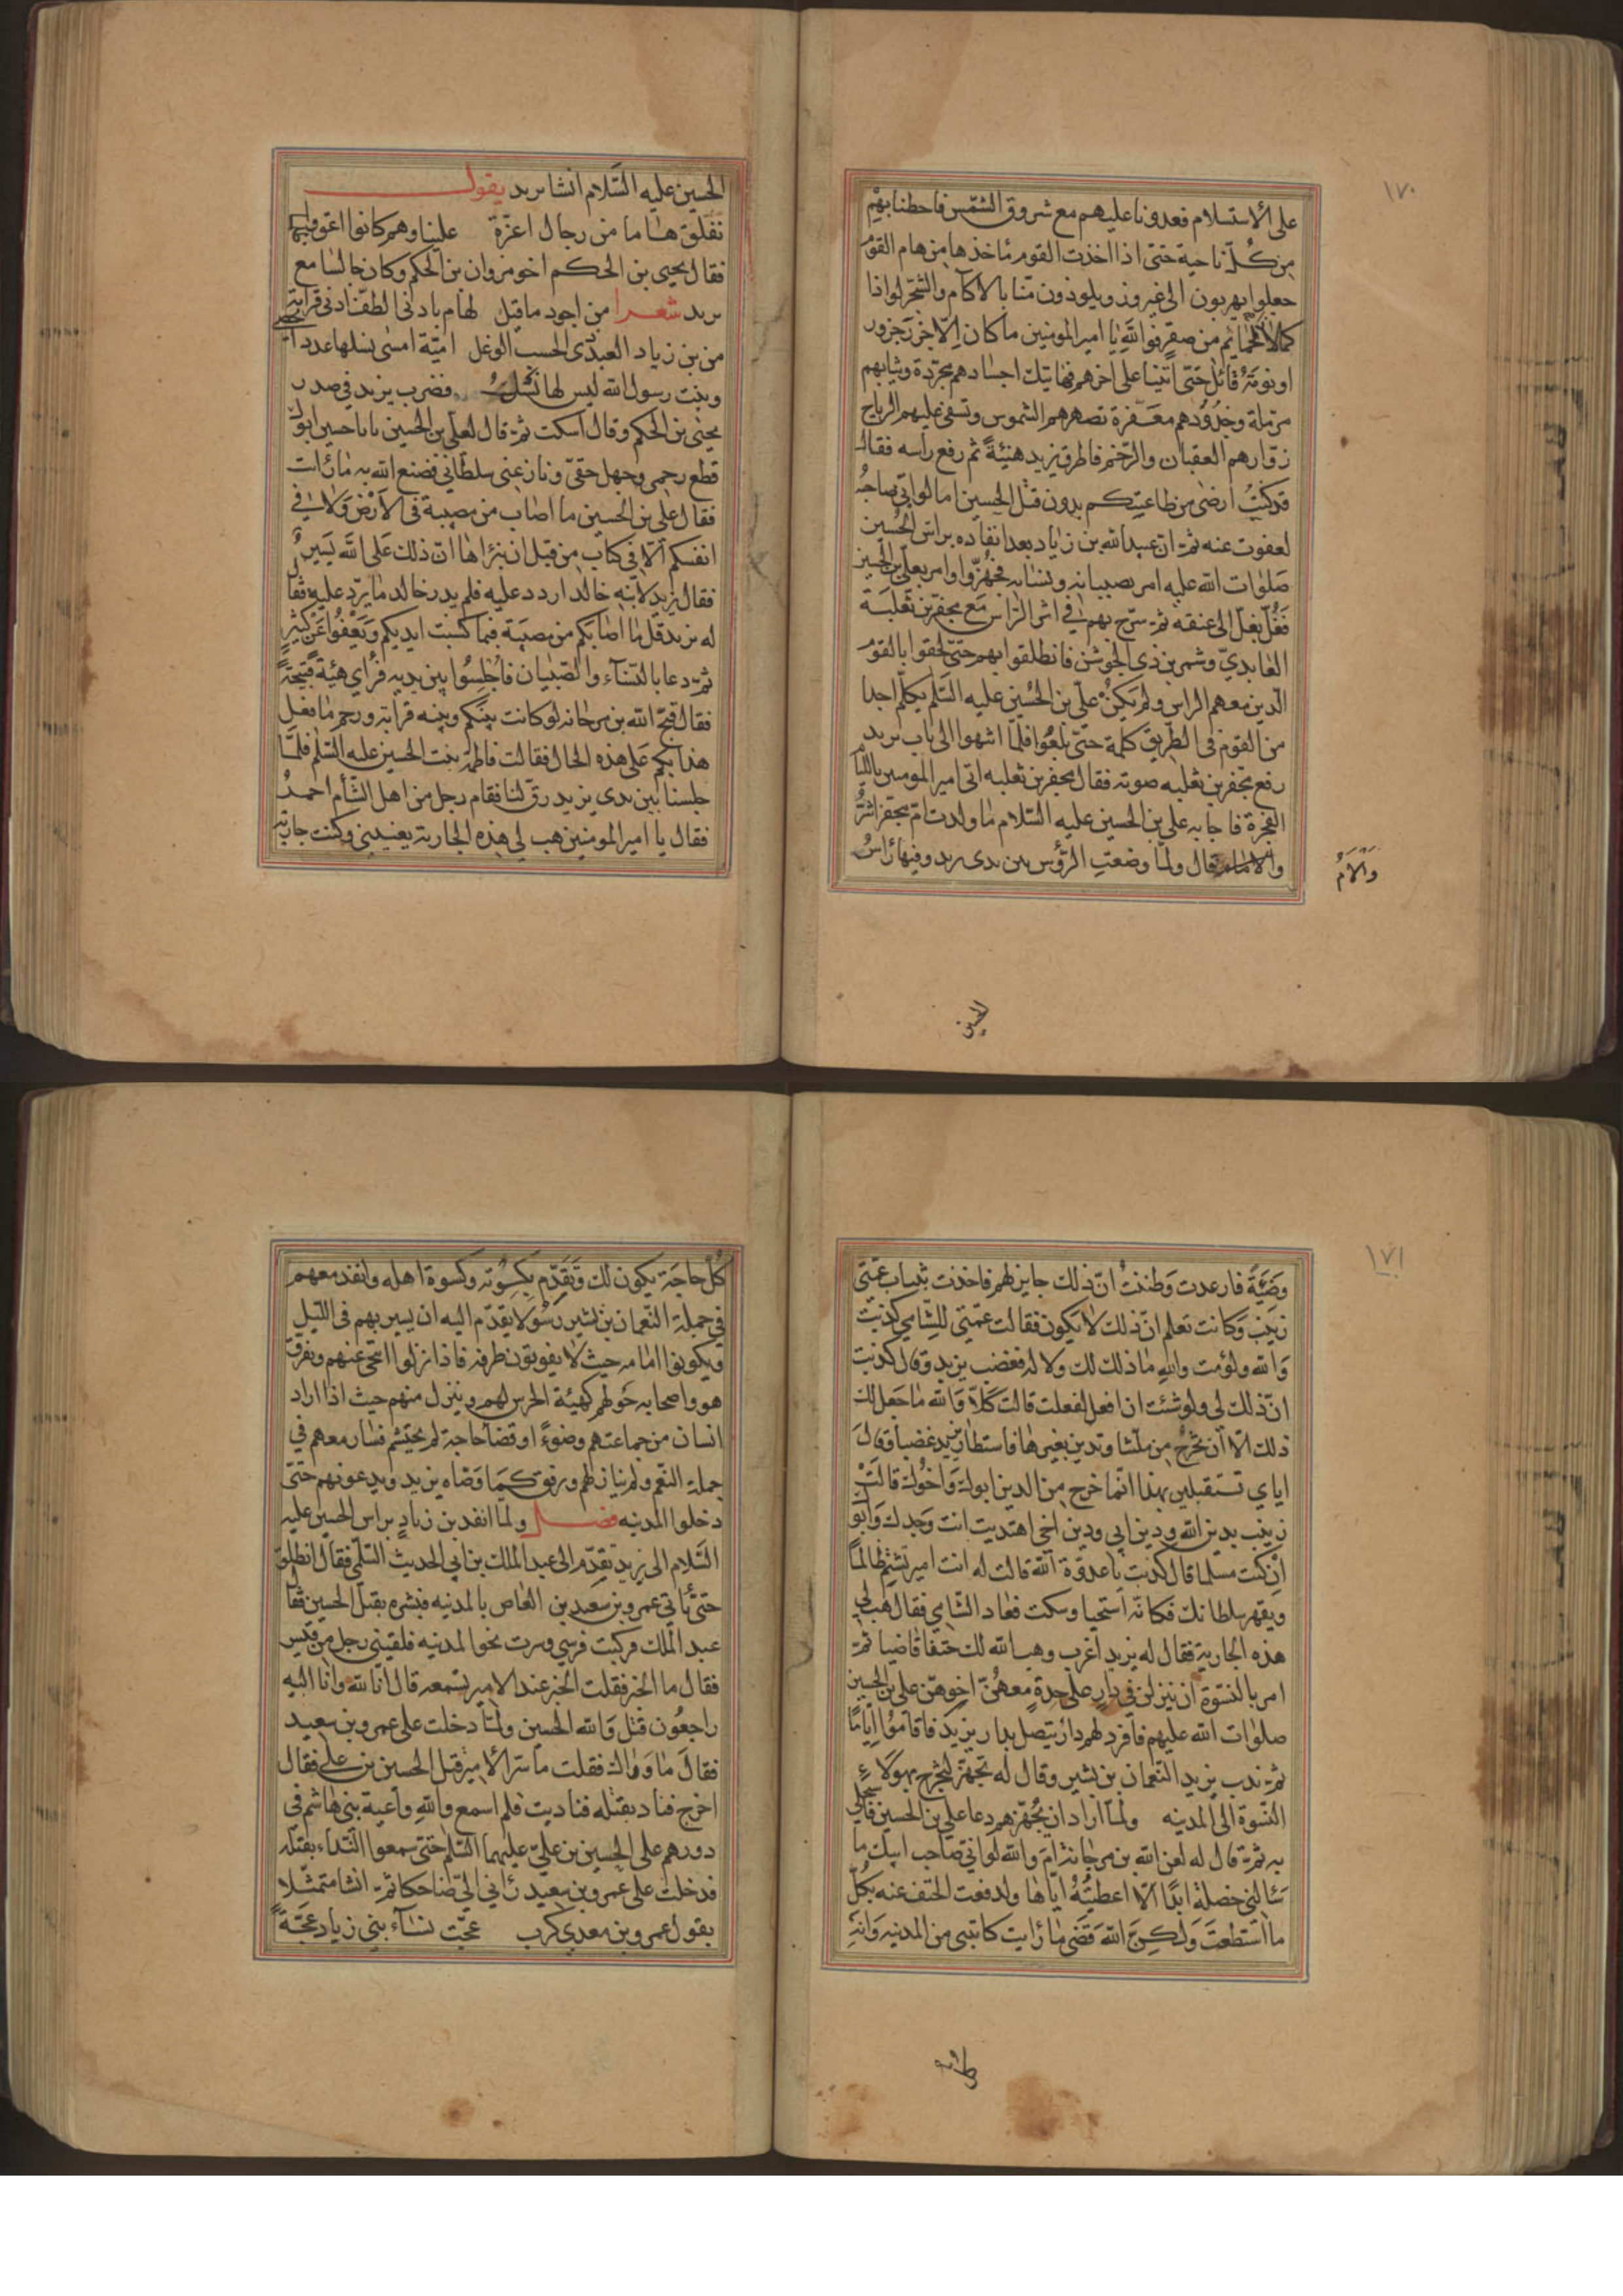 ١٧٠
على الاستسلام فعدونا عليهم مع شروق الشمس فاحطنا بهم
من كلّ ناحية حتى اذا اخذت القوم مآخذها من هام القوم
جعلوا يهربون الى غير وزر ويلوذون منّا بالآكام والشجر لواذا
كما لاذ الحمايم من صقر فوالله يا امير المومنين ما كان إلّا جزر جزور
او نومة قائل حتى اتينا على اخرهم فهاتيك اجسادهم مجرّدة وثيابهم
مرمّلة وخدودهم معفّرة تصهرهم الشموس وتسفى عليهم الرياح
زوّارهم العقبان والرّخم فاطرق يزيد هنيئةً ثم رفع راسه فقال
قد كنتُ ارضى من طاعتكم بدون قتل الحسين اما لو انّى صاحبُه
لعفوت عنه ثمّ انّ عبيد الله بن زياد بعد انفاده براس الحُسين
صلوات الله عليه امر بصبيانه ونسائه فجُهّزوا وامر بعلىّ بن الحسين
فَغُلّ بغلّ الى عنقه ثمّ سرّح بهم في اثر الرّاس مع محفّر بن ثعلبة
العٰابديّ وشمر بن ذي الجوشن فانطلقوا بهم حتىّ لحقوا بالقوم
الّذين معهم الراس ولم يَكنْ علىّ بن الحُسين عليه السّلم يكلّم احدا
من القوم فى الطّريق كلمة حتى بلغوا فلّما انتهوا الى باب يزيد
رفع محفر بن ثعلبه صوته فقال محفر بن ثعلبه اتى امير المومنين باللئام
الفجرة فاجابه على بن الحسين عليه السّلام ما ولدت ام محفز اشرُّ
والام قال ولمّا وضعتِ الرّؤس بين يدى يزيد وفيها رٰاسُ
وَأَلْأَمُ
الحسين
الحسين عليه السّلام انشا يزيد يقول
نفلّق هاما من رجال اعزّة علينا وهم كانوا اعق واظلما
فقال يحيى بن الحكم اخو مروان بن الحكم وكان جالسًا مع
يزيد شعرا من اجود ما قيل لهام بادنى الطفّ ادنى قرابة
من بن زياد العبد ذى الحسب الوغل اميّة امسى نسلها عدد الحصى
وبنت رسول الله ليس لها نسل فضرب يزيد فى صدر
يحيٰى بن الحكم وقال اسكت ثمّ قال لعلىّ بن الحسين يا با حسين ابوك
قطع رحمى وجهل حقىّ ونازعنى سلطانى فصنع الله به ما رٔات
فقال على بن الحسين ما اصاب من مصيبة فى الارض ولا فى
انفسكم الّا في كتاب من قبل ان نبراها انّ ذلك على الله يسيرٌ
فقال يزيد لابنه خالد اردد عليه فلم يدر خالد ما يردّ عليه فقال
له يزيد قل ما اصٰابكم من مصيبة فبما كسبت ايديكم ويعفوا عن كثير
ثمّ دعا بالنسآء والصّبيان فاُجلِسُوا بين يديه فرأى هيئة قبيحةً
فقال قبّح الله بن مرجانه لو كانت بينكم وبينه قرابة ورحم ما فعل
هذا بكم على هذه الحال فقالت فاطمة بنت الحسين عليه السّلم فلمّا
جلسنا بين يدى يزيد رقّ لنا فقام رجل من اهل الشّأم احمرُ
فقال يا امير المومنين هب لي هذه الجارية يعنينى وكنت جارية
١٧١
وَضيئَةً فارعدت وظننتُ انّ ذلك جايز لهم فاخذت بثياب عمّتى
زينب وكانت تعلم انّ ذلك لا يكون فقالت عمّتي للشّامي كذبت
والله ولؤمت والله ما ذلك لك ولا له فغضب يزيد وقال كذبت
انّ ذلك لى ولو شئت ان افعل لفعلت قالت كلّا وَالله ما جعل لك
ذلك الّا أن تخرج من ملّتنا وتدين بغيرها فاستطار يزيد غضبا وقالَ
اياي تستقبلين بهذا انّما خرج من الدين ابوك وَاخوك قالتْ
زينب بدين الله ودين ابي ودين اخى اهتديت انت وجدك وابو
ان كنت مسلما قال كذبتِ يا عدوّة الله قالت له انت امير تشتم ظالمًا
وتقهر بسلطانك فكانّه استحيا وسكت فعاد الشّامي فقال هب لي
هذه الجارية فقال له يزيد اغرب وهب الله لك حتفا قاضيا ثمّ
امر بالنسّوة ان ينزلن في دارٍ على حِدةٍ معهُنّ اخوهنّ على بن الحسين
صلوٰات الله عليهم فافرد لهم دار يتصل بدار يزيد فاقاموُا ايّامًا
ثمّ ندب يزيد النّعمان بن بشير وقال له تجهّز لتخرج بهولَاء
النّسوة الى المدينه ولمّا اراد ان يُجهّزهم دعا على بن الحسين فاستخلي
به ثمّ قال له لعن الله بن مرجانة امَ والله لو انّي صاحب ابيك ما
سَٔالنى خصلة ابدًا الّا اعطيتُهُ ايّاها ولدفعت الحتف عنه بكُلّ
ما استطعت ولٰكنَّ الله قضى ما رٔايت كاتبنى من المدينه وَانهِ
كُلّ حاجَة يكون لك وتقدّم بكسوته وكسوة اهله وانفذ معهم
في جملة النّعمان بن بشير رسُولا يقدّم اليه ان يسير بهم فى اللّيل
ويكونوا امامه حيث لا يفوتون طرفه فاذا نزلوا انتحى عنهم وتفرّق
هو واصحابه حولهم كهيئة الحرس لهم وينزل منهم حيث اذا اراد
انسان من جماعتهم وضوءً او قضآ حاجة لم يحتشم فسٰار معهم فى
جملة النّعم ولم ينازلهم ورفق كما وصّاه يزيد ويدعونهم حتىّ
دخلوا المدينه فصل ولما انفد بن زيادٍ براس الحسين عليه
السّلام الى يزيد تقدّم الى عبد الملك بن ابي الحديث السّلمى فقال انطلق
حتّى تٔاتى عمرو بن سعيد بن العٰاص بالمدينه فبشره بقتل الحسين فقال
عبد الملك فركبت فرسي وسرت نحو المدينه فلقينى رجل من قيس
فقال ما الخبر فقلت الخبر عند الامير تسمعه قال انّا لله وانّا اليه
راجعُون قتل وَالله الحسين ولمّا دخلت على عمرو بن سعيد
فقالَ ما وَراك فقلت ما سرّ الامير قتل الحسين بن على فقال
اخرج فناد بقتله فناديت فلم اسمع والله واعية بنى هٰاشم فى
دورهم على الحسين بن علىّ عليهما السّلم حتى سمعوا النّداء بقتله
فدخلت على عمرو بن سعيد فلمّا رٔاني الىّ ضاحكا ثمّ انشا متمثّلا
بقول عمرو بن معدي كرب عجّت نسآء بنى زياد عجّةً